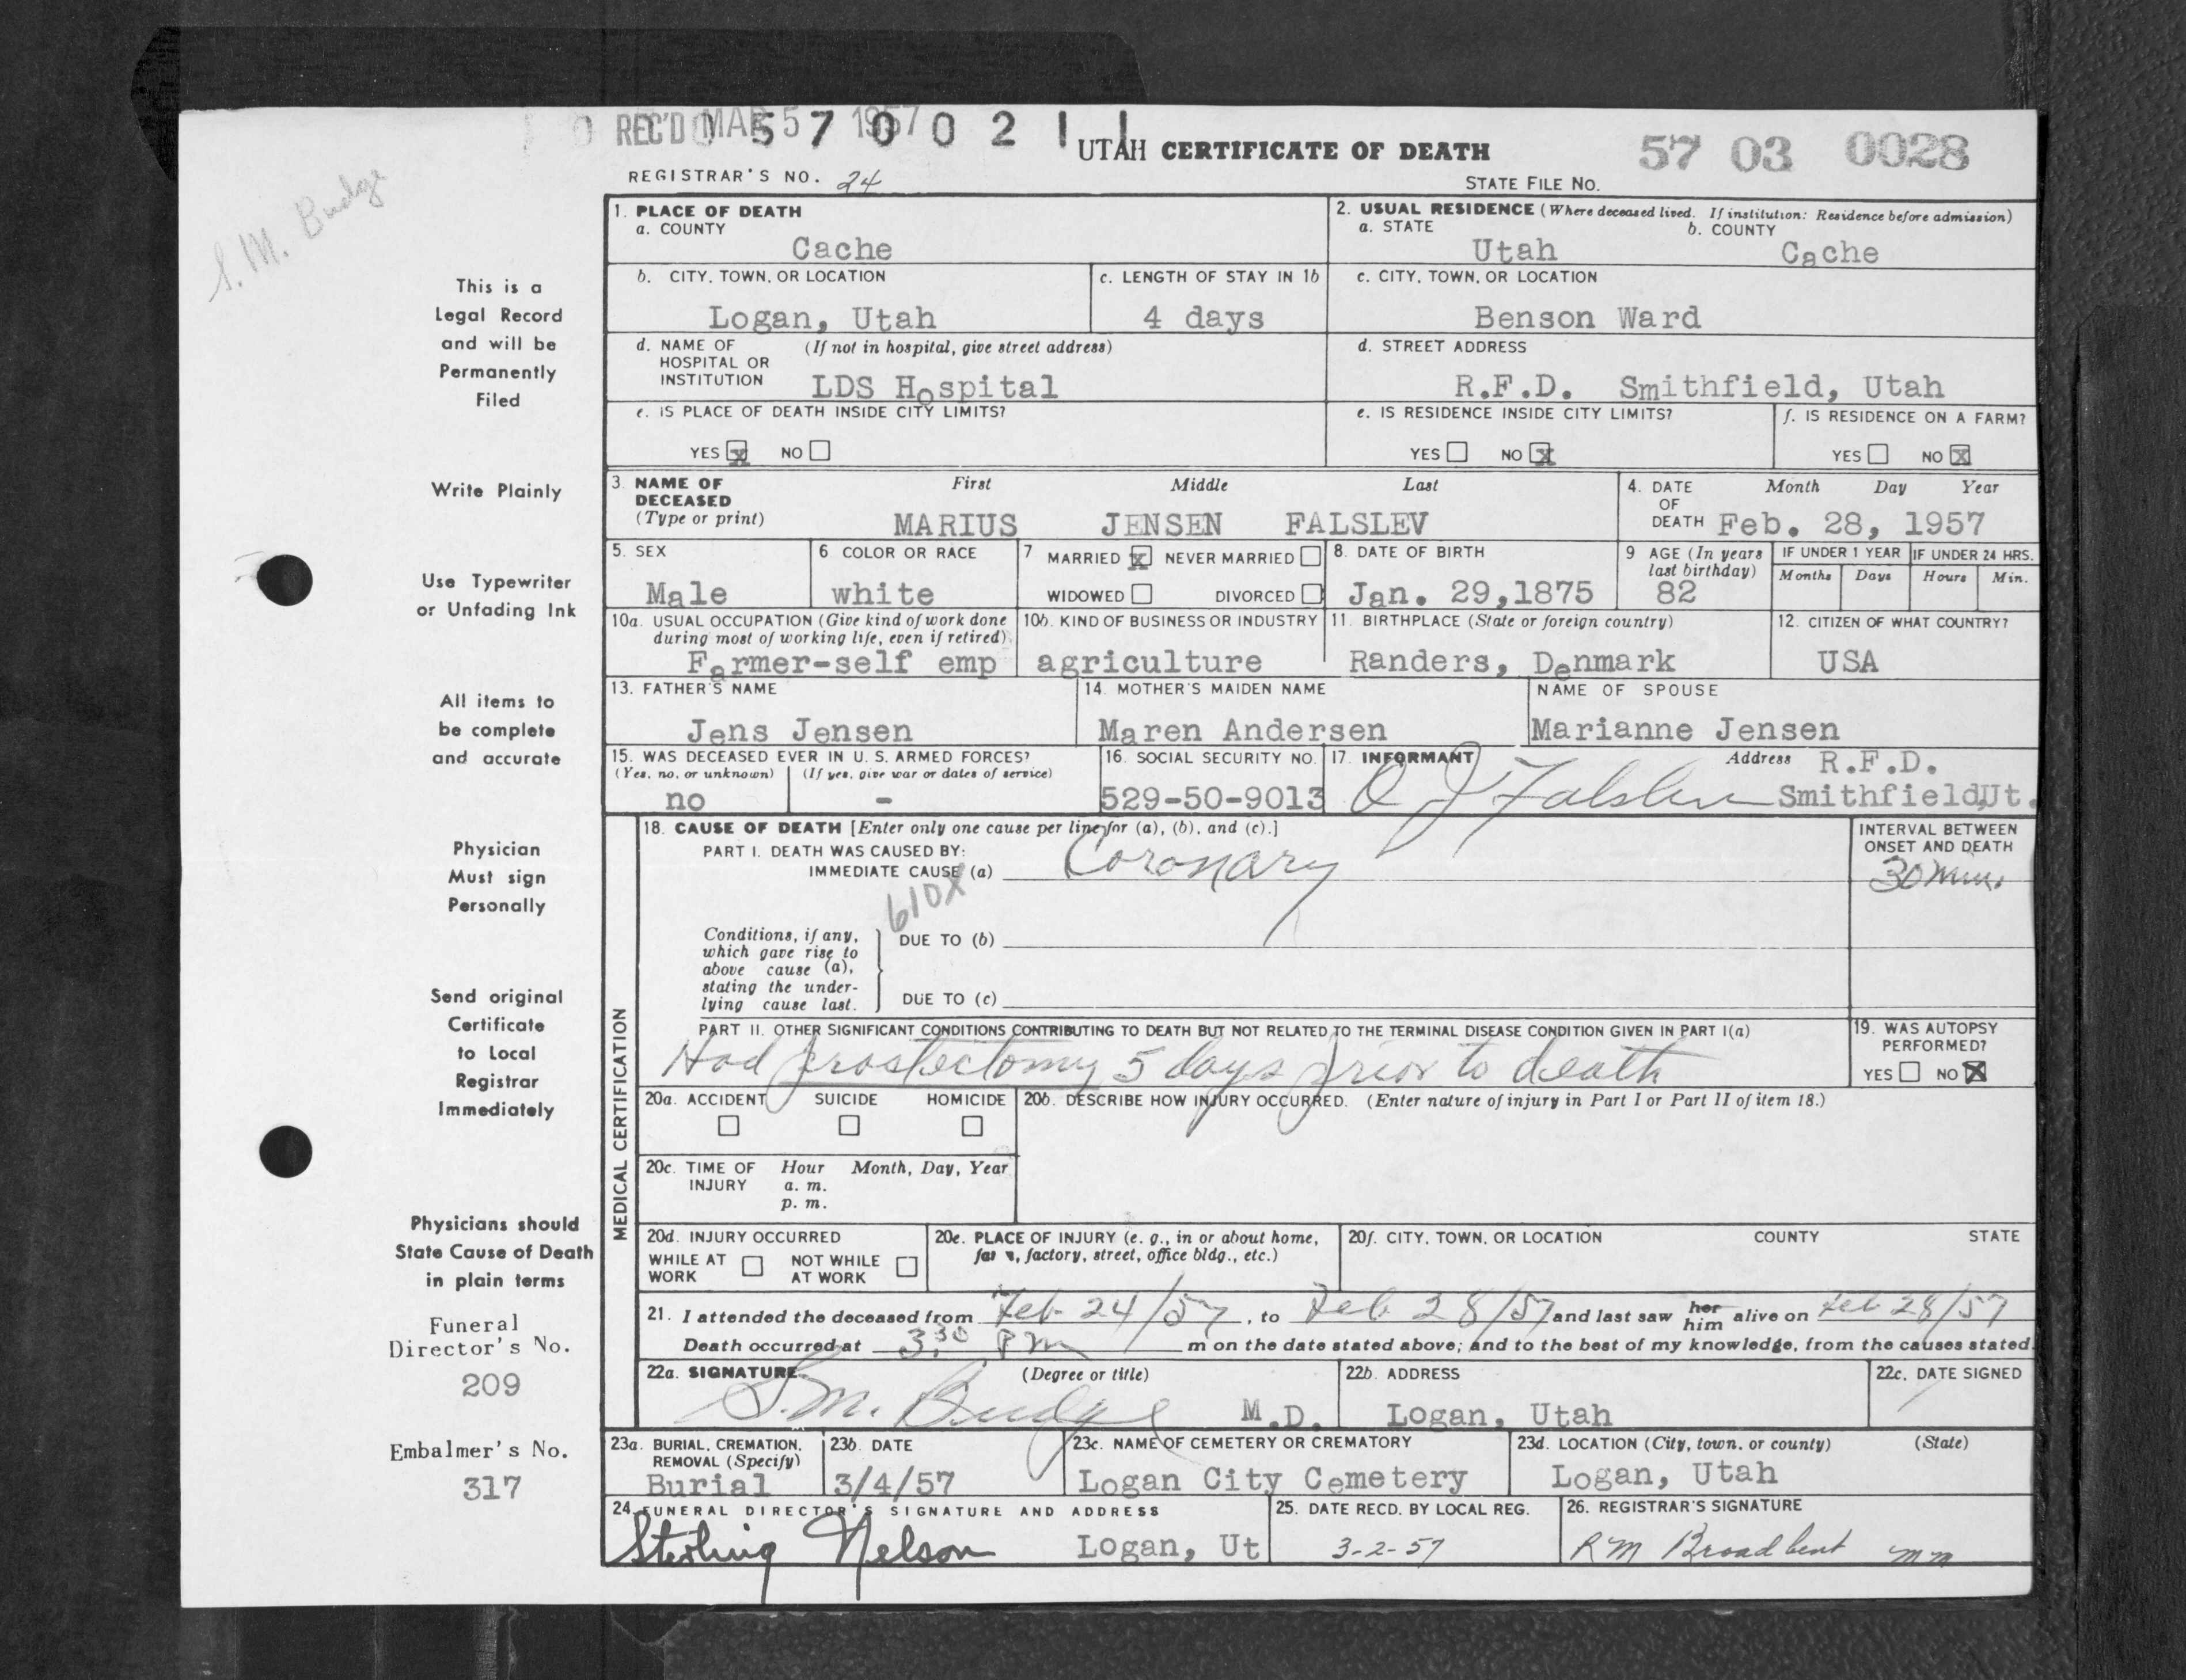 S. M. Budge
REC'D MAR 5 1957
0 5 7 0 0 2 1 1
UTAH CERTIFICATE OF DEATH
57 03 0028
REGISTRAR'S NO. 24
STATE FILE NO.
This is a
Legal Record
and will be
Permanently
Filed
Write Plainly
Use Typewriter
or Unfading Ink
All items to
be complete
and accurate
Physician
Must sign
Personally
Send original
Certificate
to Local
Registrar
Immediately
Physicians should
State Cause of Death
in plain terms
Funeral
Director's No.
209
Embalmer's No.
317
1. PLACE OF DEATH
a. COUNTY
Cache
2. USUAL RESIDENCE (Where deceased lived. If institution: Residence before admission)
a. STATE b. COUNTY
Utah Cache
b. CITY, TOWN, OR LOCATION
Logan, Utah
c. LENGTH OF STAY IN 1b
4 days
c. CITY, TOWN, OR LOCATION
Benson Ward
d. NAME OF (If not in hospital, give street address)
HOSPITAL OR
INSTITUTION LDS Hospital
d. STREET ADDRESS
R.F.D. Smithfield, Utah
e. IS PLACE OF DEATH INSIDE CITY LIMITS?
YES x NO
e. IS RESIDENCE INSIDE CITY LIMITS?
YES NO x
f. IS RESIDENCE ON A FARM?
YES NO x
3. NAME OF First Middle Last
DECEASED
(Type or print) MARIUS JENSEN FALSLEV
4. DATE Month Day Year
OF
DEATH Feb. 28, 1957
5. SEX
Male
6 COLOR OR RACE
white
7 MARRIED x NEVER MARRIED
WIDOWED DIVORCED
8. DATE OF BIRTH
Jan. 29,1875
9 AGE (In years
last birthday)
82
IF UNDER 1 YEAR IF UNDER 24 HRS.
Months Days Hours Min.
10a. USUAL OCCUPATION (Give kind of work done
during most of working life, even if retired)
Farmer-self emp
10b. KIND OF BUSINESS OR INDUSTRY
agriculture
11. BIRTHPLACE (State or foreign country)
Randers, Denmark
12. CITIZEN OF WHAT COUNTRY?
USA
13. FATHER'S NAME
Jens Jensen
14. MOTHER'S MAIDEN NAME
Maren Andersen
NAME OF SPOUSE
Marianne Jensen
15. WAS DECEASED EVER IN U. S. ARMED FORCES?
(Yes, no, or unknown) (If yes, give war or dates of service)
no -
16. SOCIAL SECURITY NO.
529-50-9013
17. INFORMANT Address R.F.D.
O J Falslev Smithfield,Ut.
MEDICAL CERTIFICATION
18. CAUSE OF DEATH [Enter only one cause per line for (a), (b), and (c).]
PART I. DEATH WAS CAUSED BY:
IMMEDIATE CAUSE (a) Coronary
INTERVAL BETWEEN
ONSET AND DEATH
30 min.
610X
Conditions, if any,
which gave rise to
above cause (a),
stating the under-
lying cause last.
DUE TO (b)
DUE TO (c)
PART II. OTHER SIGNIFICANT CONDITIONS CONTRIBUTING TO DEATH BUT NOT RELATED TO THE TERMINAL DISEASE CONDITION GIVEN IN PART I(a)
Had prostectomy 5 days prior to death
19. WAS AUTOPSY
PERFORMED?
YES NO X
20a. ACCIDENT SUICIDE HOMICIDE
20b. DESCRIBE HOW INJURY OCCURRED. (Enter nature of injury in Part I or Part II of item 18.)
20c. TIME OF Hour Month, Day, Year
INJURY a. m.
p. m.
20d. INJURY OCCURRED
WHILE AT NOT WHILE
WORK AT WORK
20e. PLACE OF INJURY (e. g., in or about home,
farm, factory, street, office bldg., etc.)
20f. CITY, TOWN, OR LOCATION COUNTY STATE
21. I attended the deceased from Feb 24/57, to Feb 28/57 and last saw her him alive on Feb 28/57
Death occurred at 3:30 PM m on the date stated above; and to the best of my knowledge, from the causes stated.
22a. SIGNATURE (Degree or title)
S. M. Budge M.D.
22b. ADDRESS
Logan, Utah
22c. DATE SIGNED
23a. BURIAL, CREMATION,
REMOVAL (Specify)
Burial
23b. DATE
3/4/57
23c. NAME OF CEMETERY OR CREMATORY
Logan City Cemetery
23d. LOCATION (City, town, or county) (State)
Logan, Utah
24. FUNERAL DIRECTOR'S SIGNATURE AND ADDRESS
Sterling Nelson Logan, Ut
25. DATE RECD. BY LOCAL REG.
3-2-57
26. REGISTRAR'S SIGNATURE
R M Broadbent mm